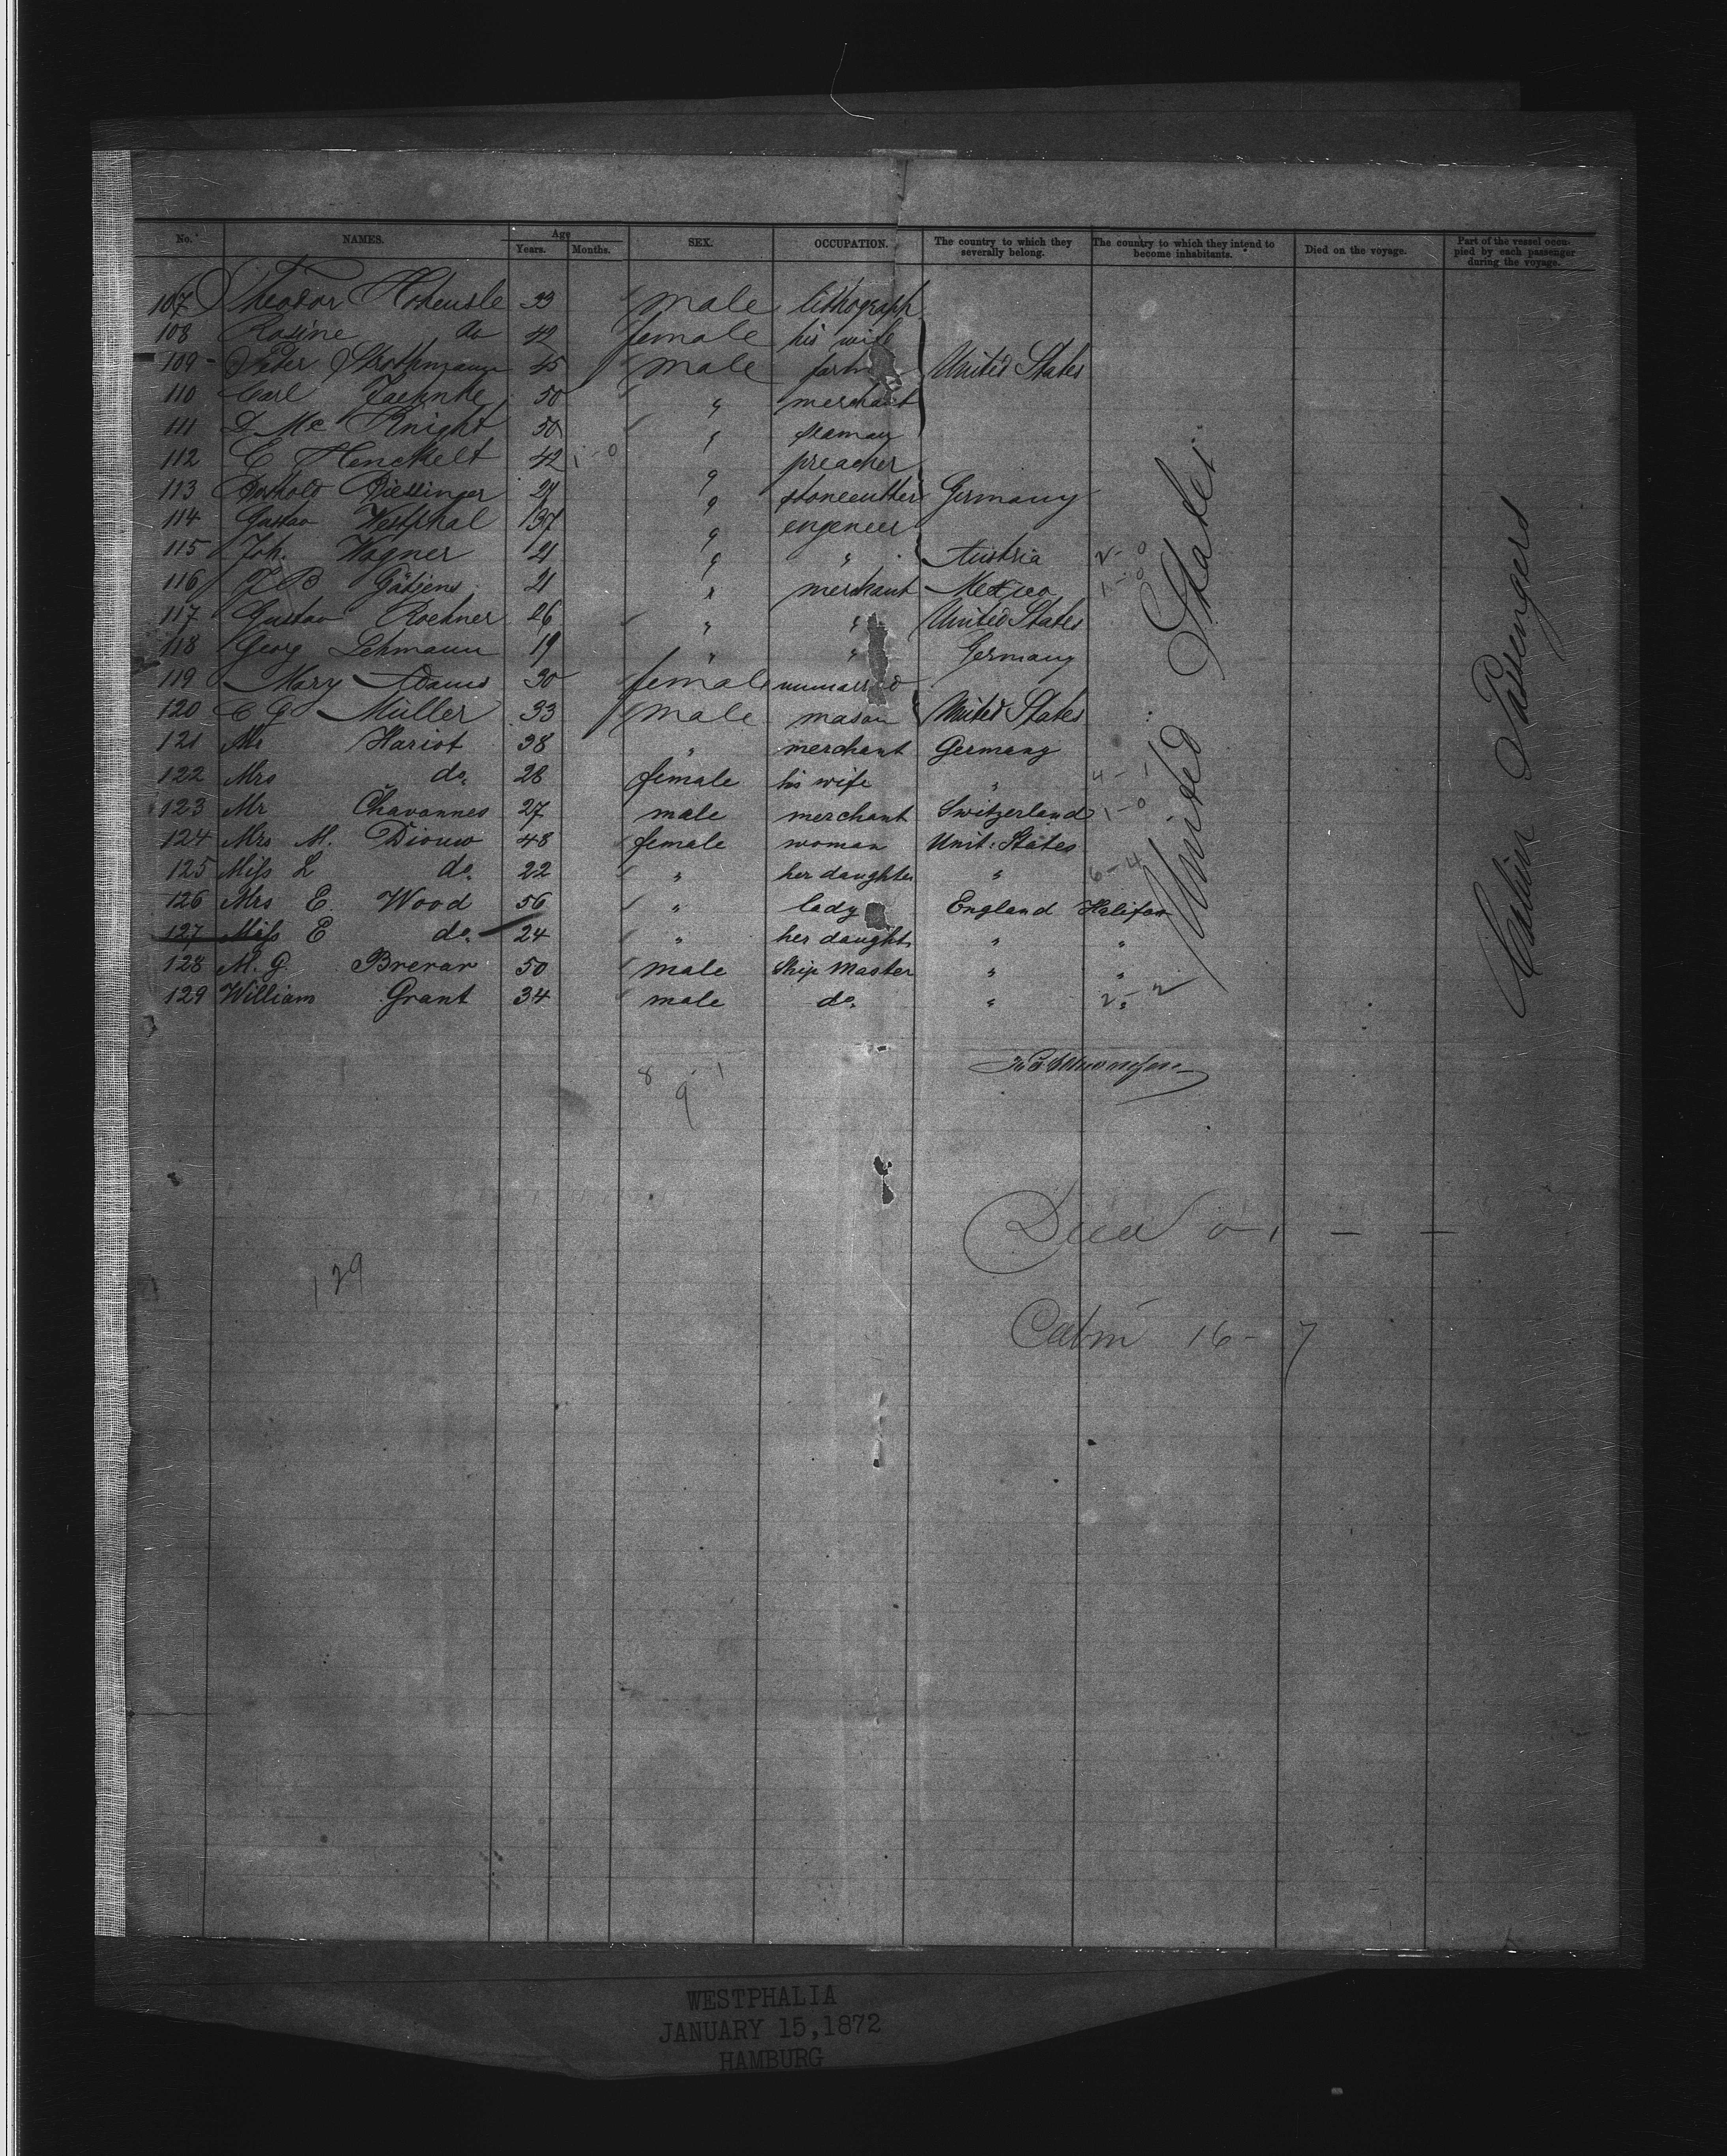 No. NAMES. Age Years. Months. SEX. OCCUPATION. The country to which they severally belong. The country to which they intend to become inhabitants. Died on the voyage. Part of the vessel occupied by each passenger during the voyage.
107 Theodor 33 male lithograph
108 Rosine do 42 female his wife
109 - Peter Strothmann 45 male United States
110 Carl Jaehnke 50 " merchant
111 D Mc Knight 50 " seaman
112 E Henckelt 42 1-0 " preacher
113 Berthold Diessinger 21 " stonecutter Germany
114 Gustav Westphal 37 " engeneer
115 Joh. Wagner 21 " " Austria 2-0
116 J B Gätjens 21 " merchant Mexico 1-0
117 Gustav Roehner 26 " " United States
118 Georg Lehmann 19 " " Germany
119 Mary Adams 30 female unmarried
120 C G Müller 33 male mason United States
121 Mr Hariot 38 " merchant Germany
122 Mrs do. 28 female his wife " 4-1
123 Mr Chavannes 27 male merchant Switzerland 1-0
124 Mrs M. Diouw 48 female woman Unit. States
125 Miss L do. 22 " her daughter " 6-4
126 Mrs E Wood 56 " lady England Halifax
127 Miss E do. 24 " her daught. " "
128 M. G. Brerar 50 male Ship Master " "
129 William Grant 34 male do. " " 2-2
United States
Cabin Passengers
8 1
9
129
0-1 - -
Cabin 16-7
WESTPHALIA
JANUARY 15,1872
HAMBURG